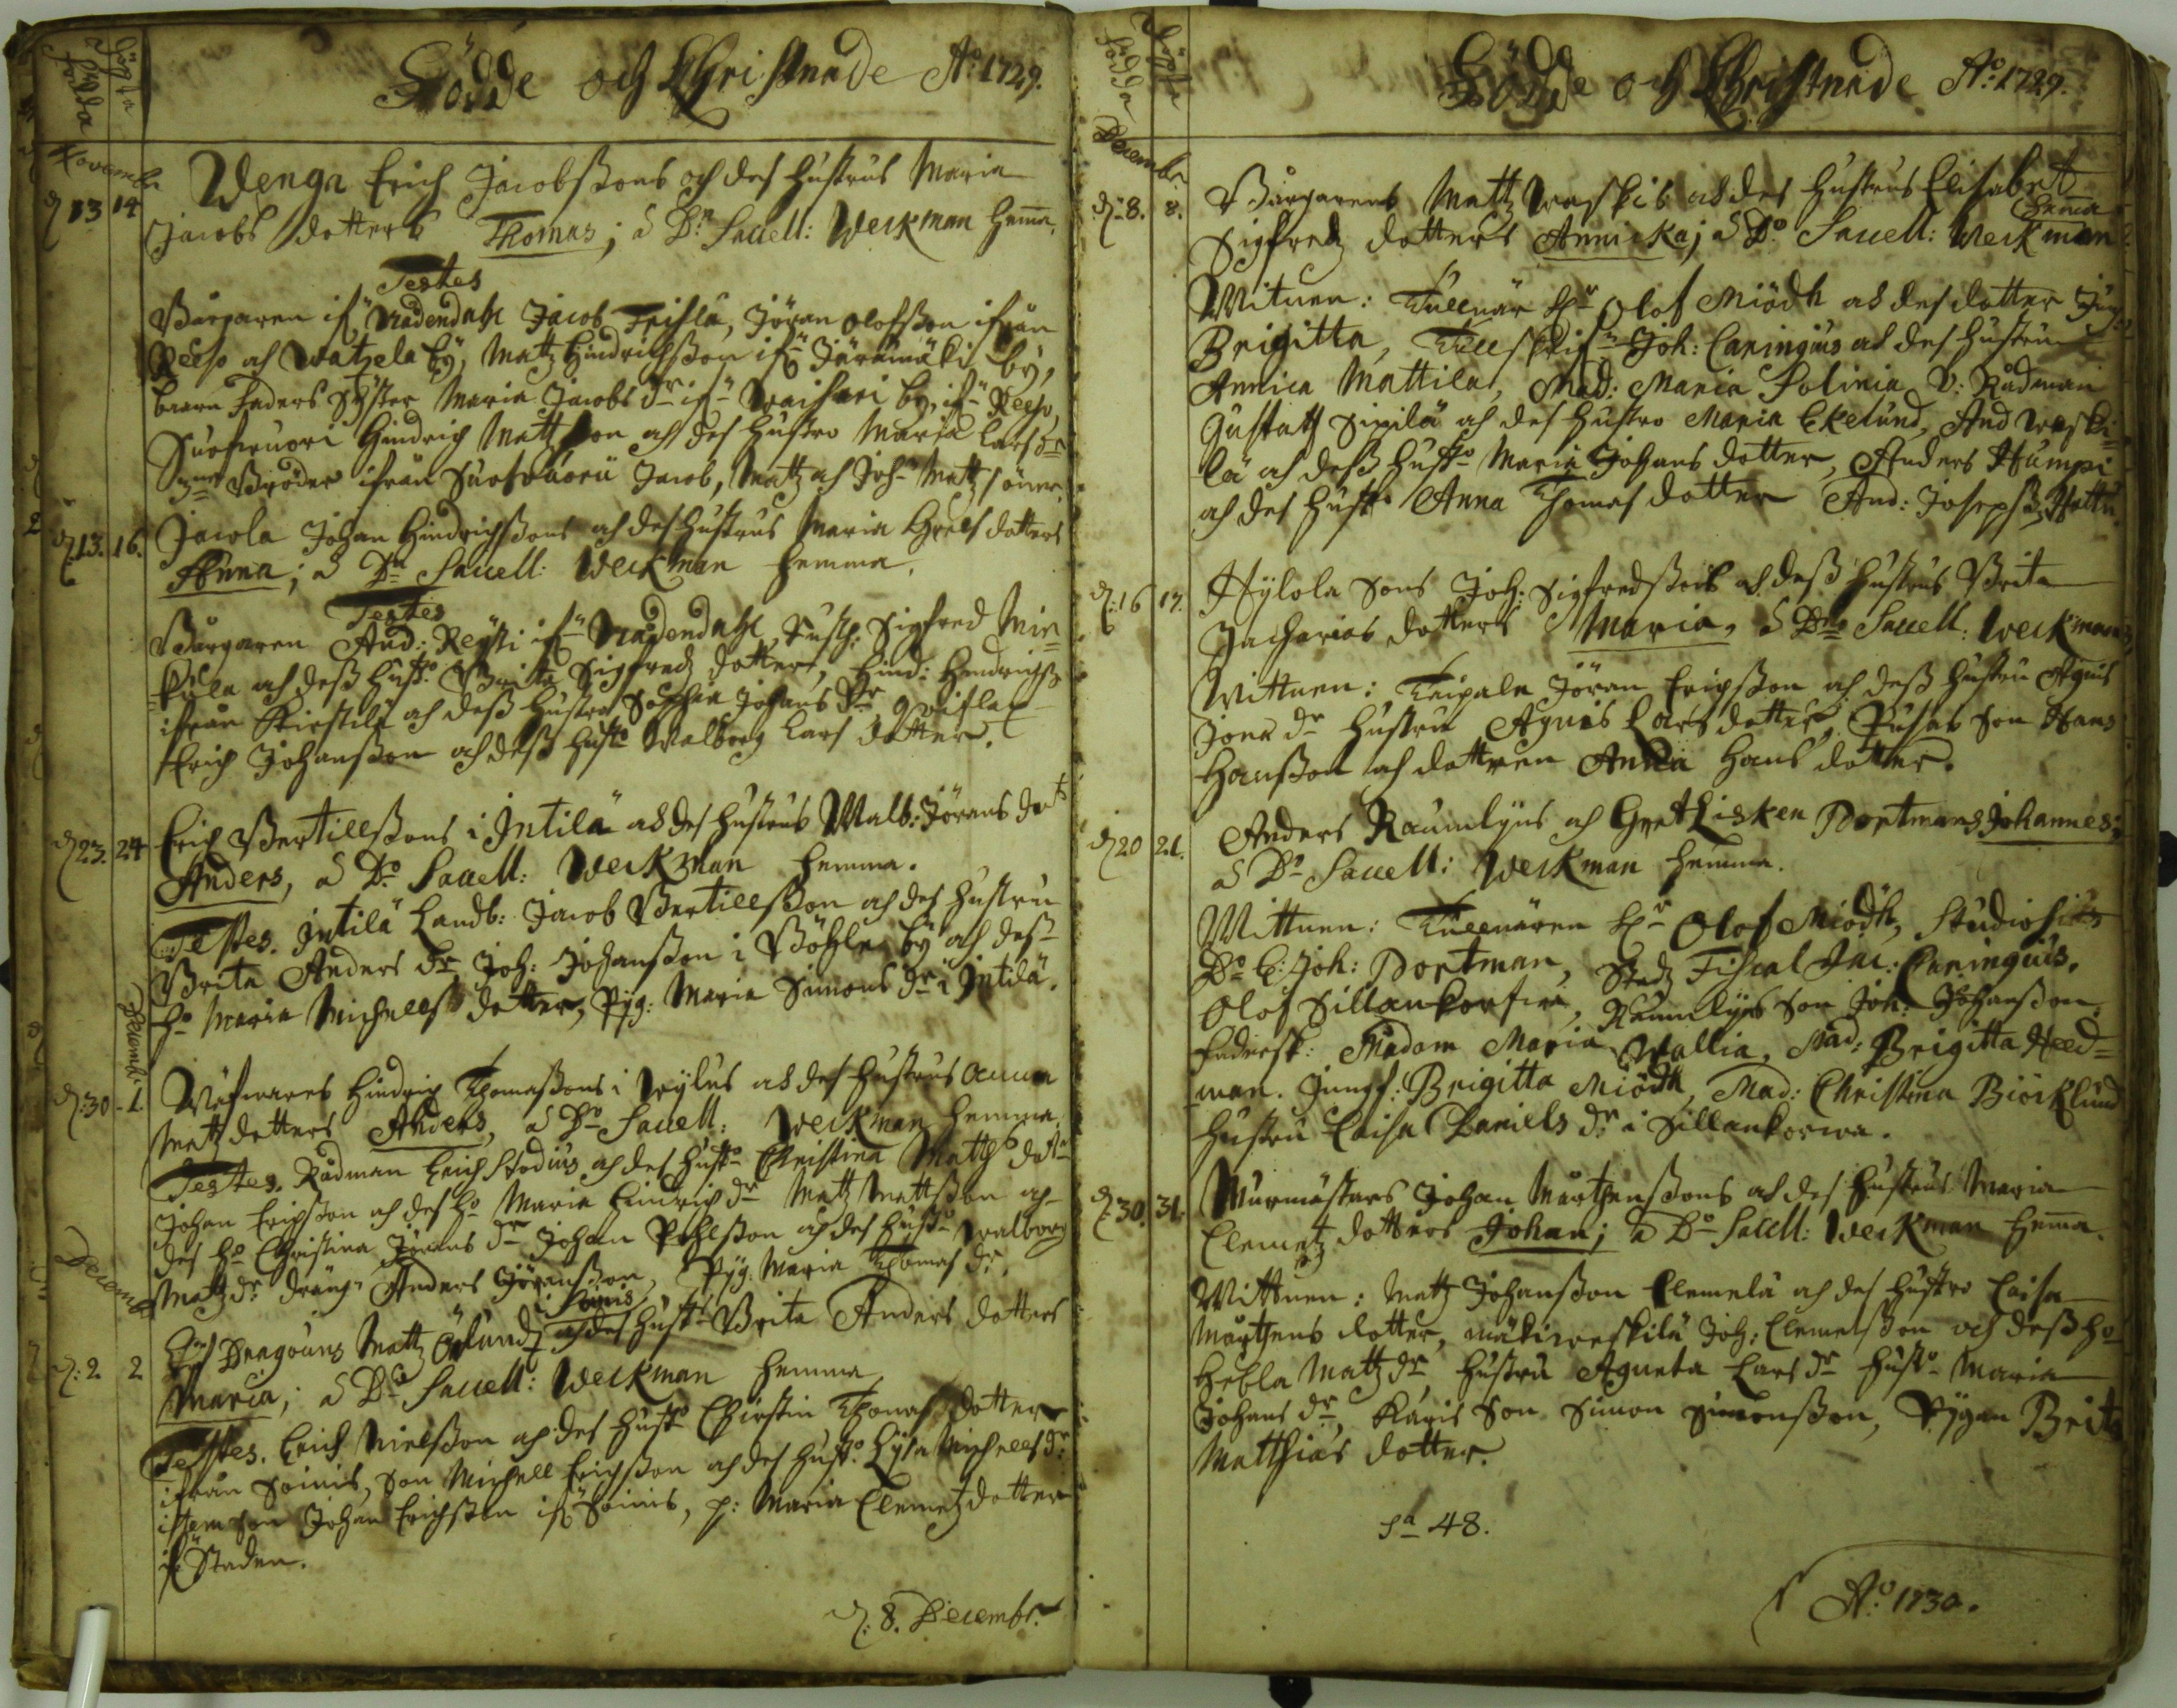 Födde och Christnade A:o 1729.
födda
döpta
Novembr
d 13 14
Wenga Erich Jacobßons och des hustrus Maria
Jacobs dotters Thomas; a D:n Sacell: Weckman hema.
Testes
Borgaren if:n Nådendahl Jacob Frisla, Jöran Olofsson ifrån
Reso och Watzela by, Matz Hindrichßon if:n Järämäki by,
barn Faders Syster Maria Jacobs d:r if:n Waihari by, if:n Reso,
Hindrich Mattsson och des hustro Maria Lars d:r
Bröder ifrån Jacob, Matz och Joh: Matz söner.
d. 13. 16.
Jacola Johan Hindrichßons och des hustrus Maria Grels dotters
Anna; a D:n Sacell: Weckman hemma.
Testes
Borgaren And: Reysi if:n Nådendahl, Sigfred Min=
kula och deß hust:o Brita Sigfreds dotter, Hind: Hendrichß
ifrån Kirstilä och deß hustro Sophia Johans d:r
Erich Johanßon och deß hust:o Walborg Lars dotter.
d 23. 24
Erich Bertillßons i Intilä och des hustrus Walb: Jörans d:rs
Anders, a D:o Sacell: Weckman hemma.
Testes. Intilä Landb: Jacob Bertillßon och des hustru
Brita Anders d:r, Joh: Johanßon i Böhle by och des
H:o Maria Michells dotter, Pig: Maria Simons d:r i Intilä.
Decemb.
d. 30 - 1.
Wäfwares Hindrich Thomaßons i Nylus och des hustrus Anna
Matz dotters Anders, a D:o Sacell: Weckman hemma.
Testes. Rådman Erich Stodius och des hust:o Christina Matths dott:r
Johan Erichsson och des h:o Maria Hindrichs d:r Matz Mattsson och
des h:o Christina Jörans d:r Johan Pohlsson och des hust:o Walborg
Matz d:r dräng: Anders Göranßon, Pig. Maria Thomas d:r.
Decemb
d: 2. 2
Dragouns Matz Öhlunds i Soinis och des hust:s Brita Anders dotters
Maria; a D:o Sacell: Weckman hemma
Testes. Erich Nielsson och des hust:o Chirstin Thomas dotter
ifrån Soinis, Son Michell Erichsson och des hust:o Lysa Michells d:r
item son Johan Erichsson if:n Soinis, p: Maria Clemetz dotter
if:n Staden.
d: 8. Decembr.
Födde och Christnade A:o 1729.
födda
döpta
Decembr.
d. 8. 8.
Borgarens Matz Waskis och des hustrus Elisabet
Sigfreds dotters Annicka; a D:o Sacell: Weckman
hema
Witnen: Tullnär H:r Olof Miödh och des dotter Jungf:
Brigitta, Tullskrif:n Joh: Caringius och des hustru
Annica Mattila, Mad: Maria Polinia V: Rådman
Gustaf Sipilä och des hustro Maria Ekelund, And Waski
lä och deß hust:o Maria Johans dotter, Anders Humpi
och des hust:o Anna Thomas dotter And: Josephß. Hattu.
d: 16 17.
Hylola Sons Joh: Sigfredßons och deß hustrus Brita
Zacharias dotters Maria, a D:o Sacell: Weckman.
Wittnen: Knipala Jöran Erichsson och deß hustru Agnis
Jöns d:r hustru Agnis Lars dotter, Pusas Son Hans
Hansson och dottren Anna Hans dotter.
d 20 21.
Anders Raumlyns och Gret Lisken Portmans Johannes;
a D:o Sacell: Weckman hemma.
Wittnen: Tullnären H:r Olof Miödh, Studiosus
D:o C: Joh: Portman, Stadz Fiscal Jac: Caringuis.
Olof Sillankorfwa, Raumlyns Son Joh: Johanßon.
Madam Maria Wallia, Mad: Brigitta Heed=
man. Jungf: Brigitta Miödh, Mad: Christina Biörklund
Hustru Caisa Daniels d:r i Sillankorwa.
d. 30. 31.
Murmästars Johan Mårthenßons och des hustrus Maria
Clemetz dotters Johan; a D:o Sacell: Weckman hema.
Wittnen: Matz Johanßon Clemelä och des hustro Caisa
Mårthens dotter, mäki weskilä Joh: Clemetsson och deß h:o
Hebla Matz d:r hustru Agneta Lars d:r hust:o Maria
Johans d:r Karis Son Simon Simonsson, Pigan Brita
Matthias dotter.
S:a 48.
A:o 1730.